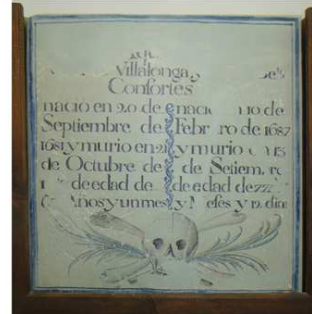 Villalonga
Confortes
nacio en 20 de nacio 10 de
Septiembre de Febr ro de 1687
1681 y murio en 21 y murio 15
de Octubre de de Setiem
de edad de de edad de 22
ños y un mes y M eses y 12 dias